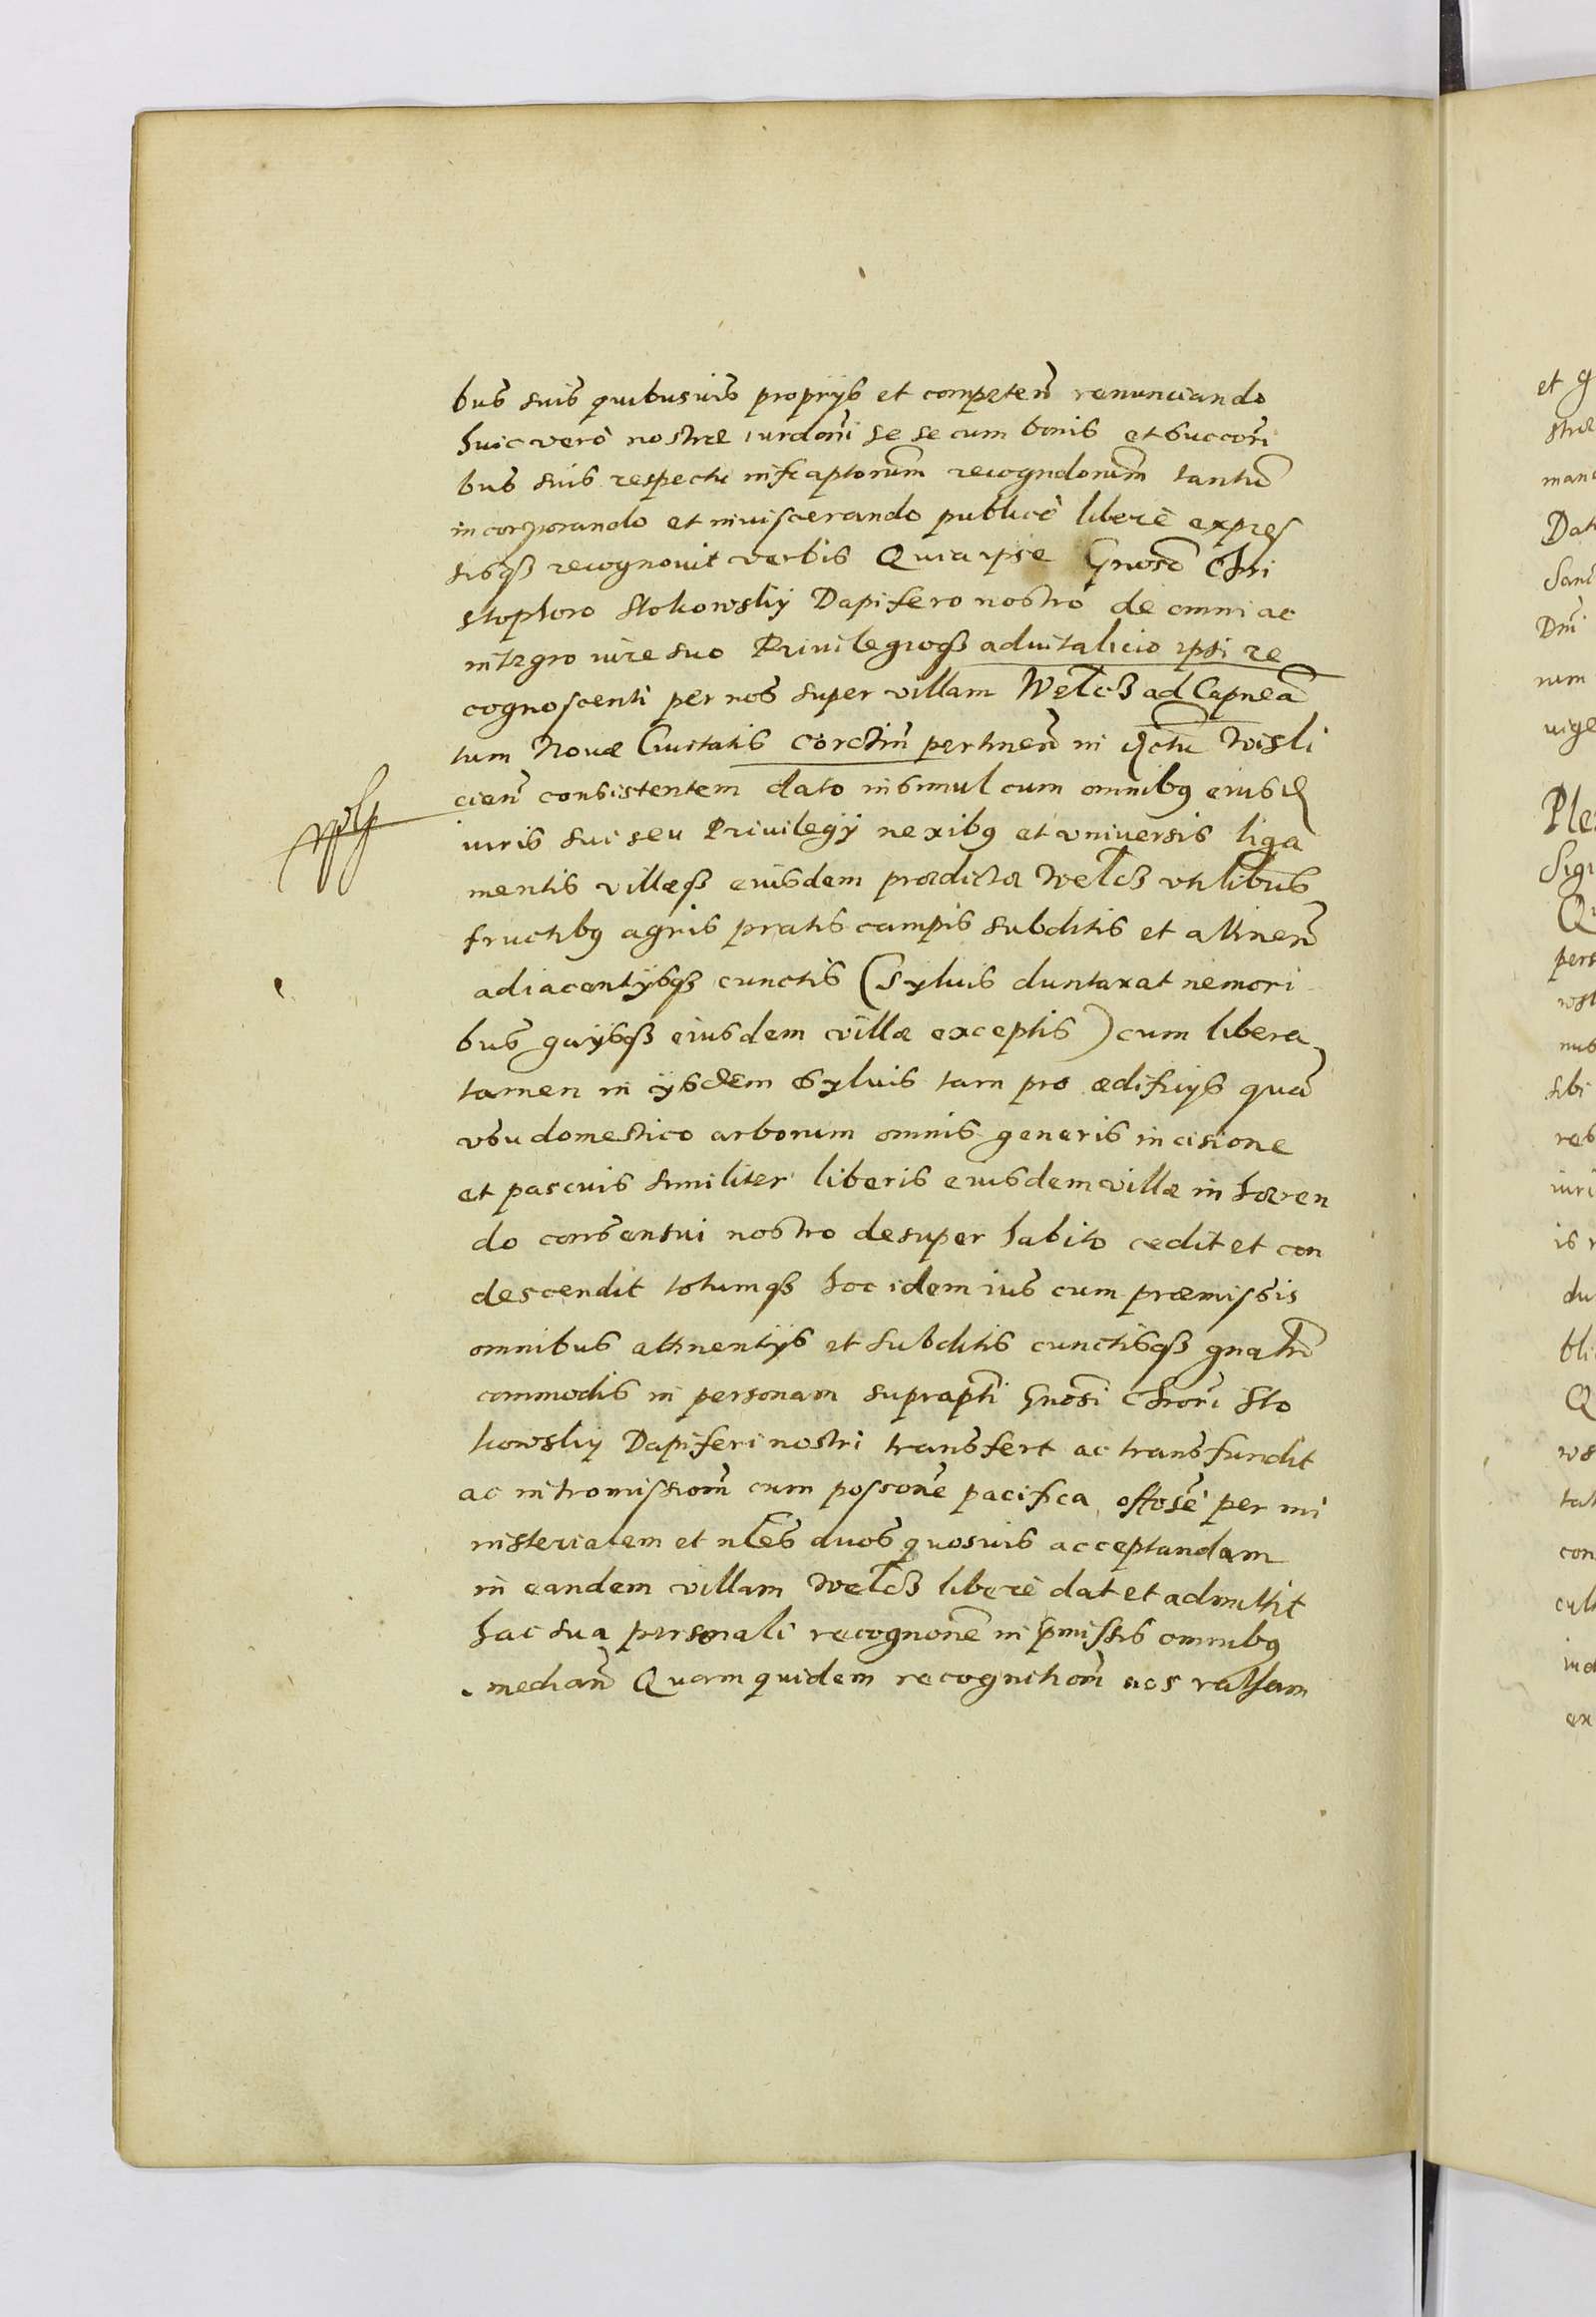 bus suis quibusuis proprijs et competeñ renunciando
huic verò nostræ iurdoni se se cum bonis et succori
bus suis respectu infraptorum recogndorum tantũ
incorporando et inuiscerando publicè liberè expres
sisqз recognouit verbis Quia ipse Gnoso Chri
stophoro Stokowskij Dapifero nostro de omni ac
integro iure suo Priuilegioqз aduitalicio ipsi re
cognoscenti per nos super villam Welcz ad Capnea
tum Nouæ Ciuitatis Corczin pertineñ in dctu Wisli
cieñ consistentem dato insimul cum omnibus eiusd
iuris sui seu Priuilegij nexibus et vniuersis liga
mentis villæqз eiusdem prædictæ Welcz vtilibus
fructibus agris pratis campis subditis et attineñ
adiacentijsqз cunctis (syluis duntaxat nemori
bus gaijsqз eiusdem villæ exceptis) cum libera
tamen in ijsdem syluis tam pro ædificijs quã
vsu domestico arborum omnis generis incisione
et pascuis similiter liberis eiusdem villæ in hæren
do consensui nostro desuper habito cedit et con
descendit totumqз hoc idem ius cum præmissis
omnibus attinentijs et subditis cunctisqз gnatr
commodis in personam suprapti Gnosi Chrori Sto
kowskij Dapiferi nostri transfert ac transfundit
ac intromissiom cum possone pacifica offose per mi
nisterialem et nles duos quosuis acceptandam
in eandem villam Welcz liberè dat et admittit
hac sua personali recognone in pmissis omnibus
mediañ Quam quidem recognitiom nos ratham